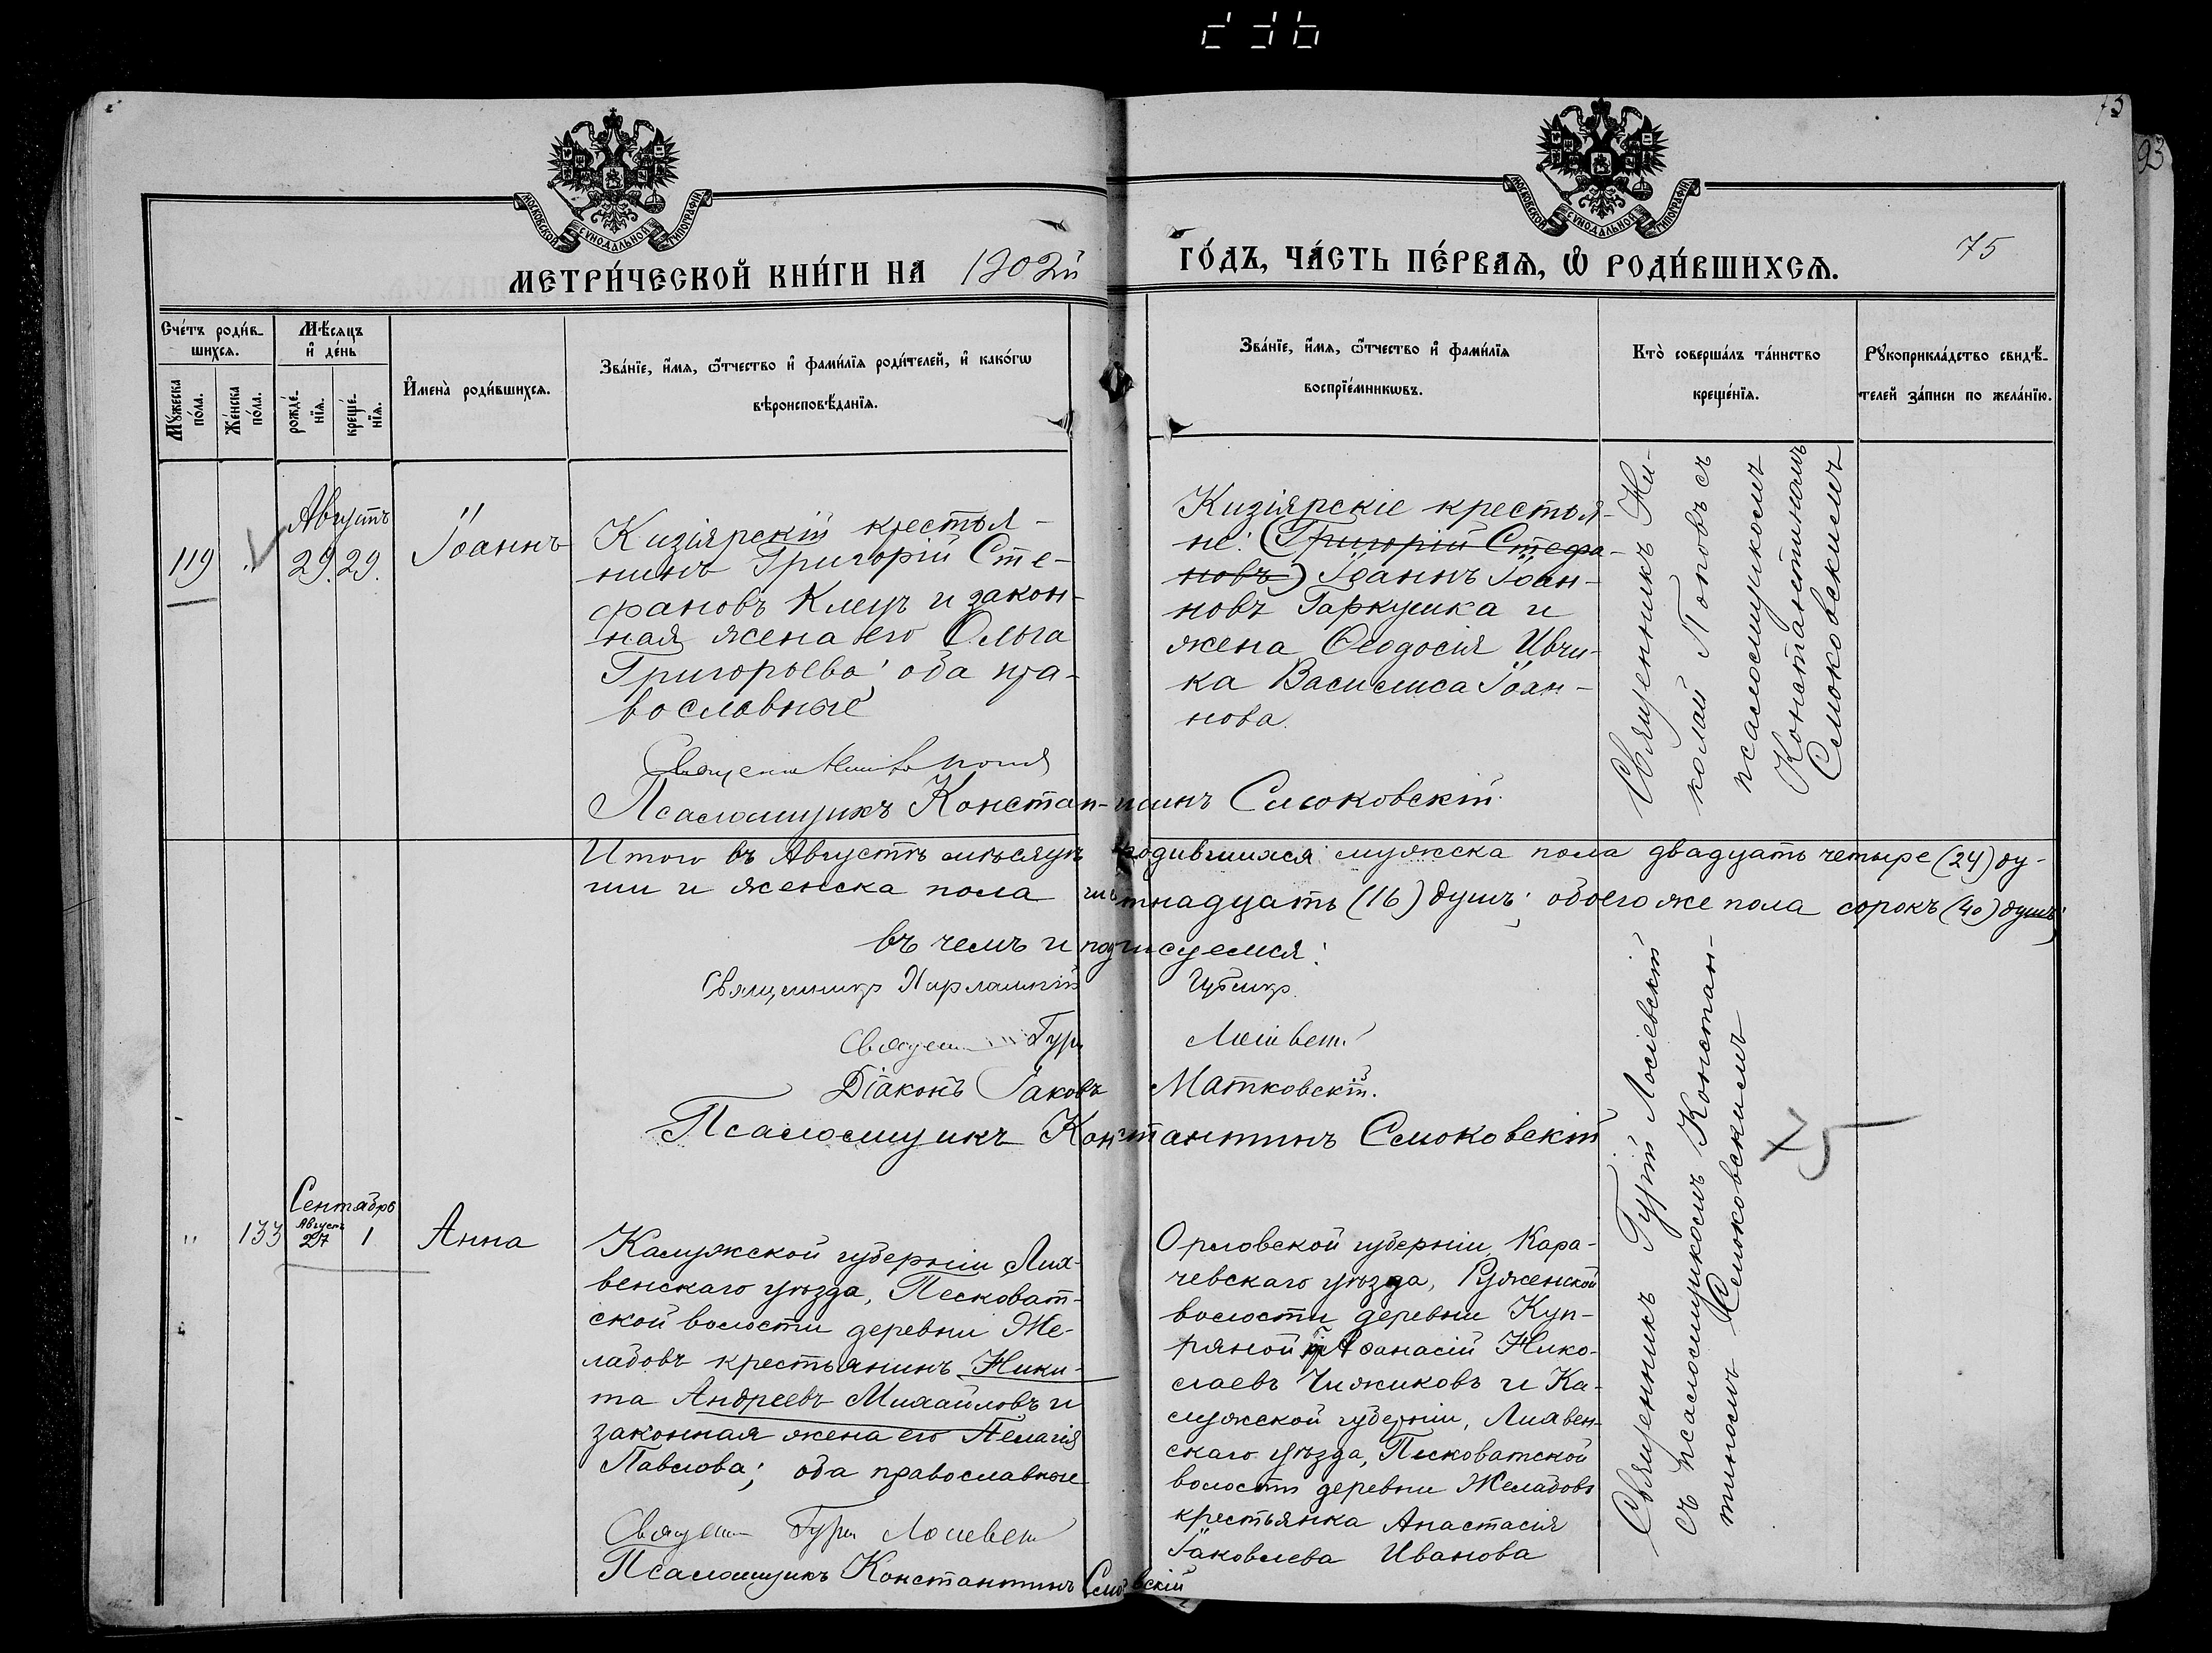 75
93
МОСКОВСКОЙ СѴНОДАЛЬНОЙ ТИПОГРАФІИ.
МОСКОВСКОЙ СѴНОДАЛЬНОЙ ТИПОГРАФІИ.
МЕТРИ́ЧЕСКОЙ КНИ́ГИ НА 1902й ГО́ДЪ, ЧА́СТЬ ПЕ́РВАѦ, Ѡ҆ РОДИ́ВШИХСѦ. 75
Сче́тъ роди́в-
шихсѧ.
Мꙋ́жеска
по́ла.
Же́нска
по́ла.
Мѣ́сяцъ
и҆ де́нь
рожде́-
нїѧ.
креще́-
нїѧ.
И҆мена̀ роди́вшихсѧ.
Зва́нїе, и҆́мѧ, ѻ҆́тчество и҆ фами́лїѧ роди́телей, и҆ како́гѡ
вѣроисповѣ́данїѧ.
Зва́нїе, и҆́мѧ, ѻ҆́тчество и҆ фами́лїѧ
воспрїе́мникѡвъ.
Кто̀ соверша́лъ та́инство
креще́нїѧ.
Рꙋкоприкла́дство свидѣ́-
телей за́писи по жела́нїю.
Августъ
119 " 29. 29. Іоаннъ
Кизіярскій крестья-
нинъ Григорій Сте-
фановъ Клецъ и закон-
ная жена его Ольга
Григорьева; оба пра-
вославные
Кизіярскіе крестья-
не: (Григорій Стефа-
новъ) Іоаннъ Іоан-
новъ Гаркушка и
жена Ѳеодосія Ивчи-
ка Василиса Іоан-
нова.
Священникъ Ни-
колай Поповъ съ
псаломщикомъ
Константиномъ
Смоковскимъ
Псаломщикъ Константинъ Смоковскій.
Итого въ Августѣ мѣсяцѣ родившихся мужска пола двадцать четыре (24) ду-
ши и женска пола шестнадцать (16) душъ; обоего же пола сорокъ (40) душъ;
въ чемъ и подписуемся:
Священникъ Харлампій
Священ Гурій Лосіевскій
Діаконъ Іаковъ Матковскій.
Псаломщикъ Константинъ Смоковскій
Сентябрь
" 133 Августъ 27 1 Анна
Калужской губерніи Лих-
венскаго уѣзда, Песковат-
ской волости деревни Же-
лабовъ крестьянинъ Ники-
та Андреевъ Михайловъ и
законная жена его Пелагія
Павлова; оба православные
Орловской губерніи, Кара-
чевскаго уѣзда, Руженской
волости деревни Куп-
ряной Аѳанасій Нико-
лаевъ Чижиковъ и Ка-
лужской губерніи, Лихвен-
скаго уѣзда, Песковатской
волости деревни Желабовъ
крестьянка Анастасія
Іаковлева Иванова
Священникъ Гурій Лосіевскій
съ псаломщикомъ Констан-
тиномъ Смоковскимъ
Х5
Священ Гурій Лосіевскій
Псаломщикъ Константинъ Смоковскій